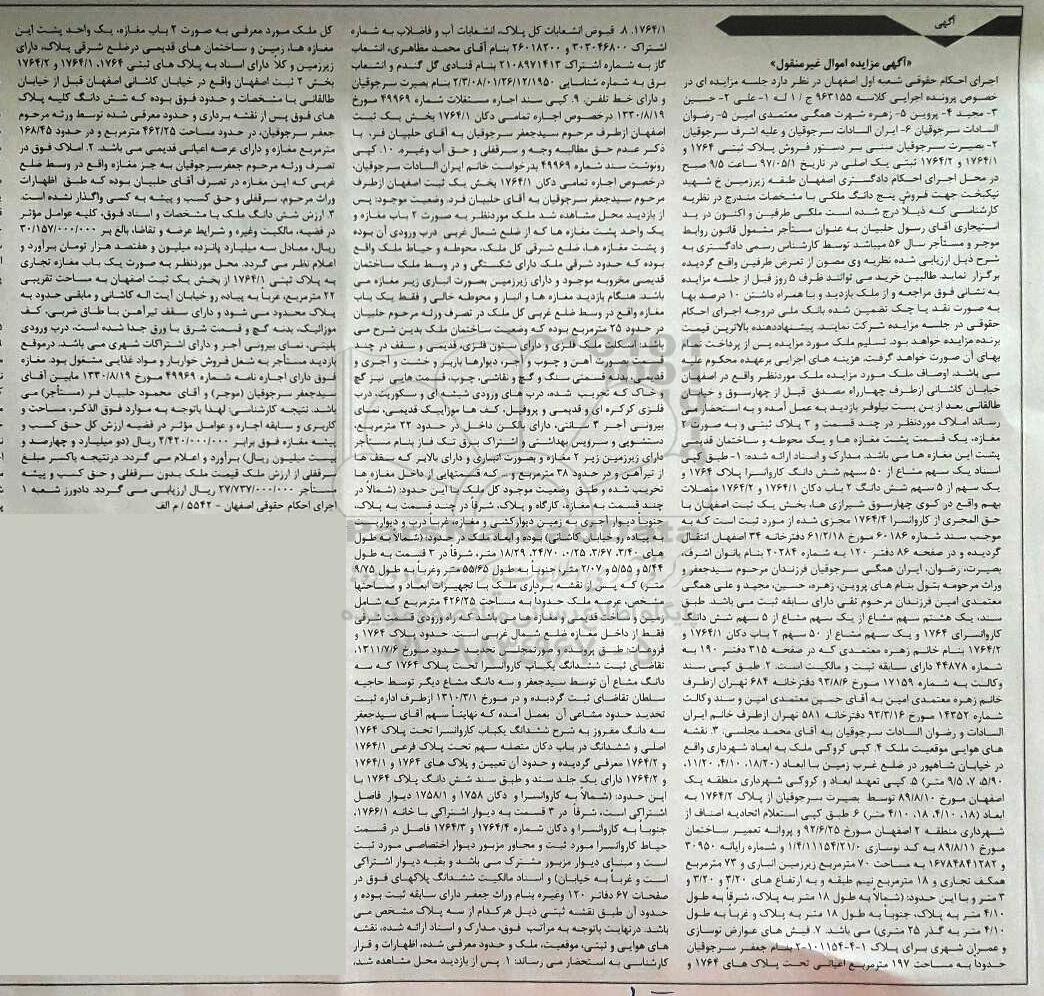 آگهی
«آگهی مزایده اموال غیرمنقول»
اجرای احکام حقوقی شعبه اول اصفهان در نظر دارد جلسه مزایده ای در
خصوص پرونده اجرایی کلاسه ۹۶۳۱۵۵ ج / ۱ له ۱- علی ۲- حسین
۳- مجید ۴- پروین ۵- زهره شهرت همگی معتمدی امین ۵- رضوان
السادات سرجوقیان ۶- ایران السادات سرجوقیان و علیه اشرف سرجوقیان
۲- بصیرت سرجوقیان مبنی بر دستور فروش پلاک ثبتی ۱۷۶۴ و
۱۷۶۴/۱ و ۱۷۶۴/۲ ثبتی یک اصلی در تاریخ ۹۷/۰۵/۱ ساعت ۹/۵ صبح
در محل اجرای احکام دادگستری اصفهان طبقه زیرزمین خ شهید
نیکبخت جهت فروش پنج دانگ ملکی با مشخصات مندرج در نظریه
کارشناسی که ذیلا درج شده است ملکی طرفین و اکنون در ید
استیجاری آقای رسول حلبیان به عنوان مستأجر مشمول قانون روابط
موجر و مستأجر سال ۵۶ میباشد توسط کارشناس رسمی دادگستری به
شرح ذیل ارزیابی شده نظریه وی مصون از تعرض طرفین واقع گردیده
برگزار نماید. طالبین خرید می توانند ظرف ۵ روز قبل از جلسه مزایده
به نشانی فوق مراجعه و از ملک بازدید و با همراه داشتن ۱۰ درصد بها
به صورت نقد یا چک تضمین شده بانک ملی دروجه اجرای احکام
حقوقی در جلسه مزایده شرکت نمایند. پیشنهاددهنده بالاترین قیمت
برنده مزایده خواهد بود. تسلیم ملک مورد مزایده پس از پرداخت تمام
بهای آن صورت خواهد گرفت. هزینه های اجرایی برعهده محکوم علیه
می باشد. اوصاف ملک مورد مزایده ملک موردنظر واقع در اصفهان
خیابان کاشانی ازطرف چهارراه مصدق قبل از چهارسوق و خیابان
طالقانی بعد از بن بست نیلوفر بازدید به عمل آمده و به استحضار می
رساند املاک موردنظر در چند قسمت و ۳ پلاک ثبتی و به صورت ۲
مغازه، یک قسمت پشت مغازه ها و یک محوطه و ساختمان قدیمی
پشت این مغازه ها می باشد. مدارک و اسناد ارائه شده: ۱- طبق کپی
اسناد یک سهم مشاع از ۵۰ سهم شش دانگ کاروانسرا پلاک ۱۷۶۴ و
یک سهم از ۵ سهم شش دانگ ۲ باب دکان ۱۷۶۴/۱ و ۱۷۶۴/۲ متصلات
بهم واقع در کوی چهارسوق شیرازی ها، بخش یک ثبت اصفهان با
حق المجری از کاروانسرا ۱۷۶۴/۳ مجزی شده از مورد ثبت است که به
موجب سند شماره ۶۰۱۸۶ مورخ ۶۱/۲/۱۸ دفترخانه ۳۴ اصفهان انتقال
گردیده و در صفحه ۸۶ دفتر ۱۲۰ به شماره ۲۰۲۸۴ بنام بانوان اشرف،
بصیرت، رضوان، ایران همگی سرجوقیان فرزندان مرحوم سیدجعفر و
وراث مرحومه بتول بنام های پروین، زهره، حسین، مجید و علی همگی
معتمدی امین فرزندان مرحوم تقی دارای سابقه ثبت می باشد طبق
سند، یک هشتم سهم مشاع از یک سهم مشاع از ۵ سهم شش دانگ
کاروانسرای ۱۷۶۴ و یک سهم مشاع از ۵۰ سهم ۲ باب دکان ۱۷۶۴/۱ و
۱۷۶۴/۲ بنام خانم زهره معتمدی که در صفحه ۳۱۵ دفتر ۱۹۰ به
شماره ۴۴۸۷۸ دارای سابقه ثبت و مالکیت است. ۲. طبق کپی سند
وکالت به شماره ۱۷۱۵۹ مورخ ۹۳/۸/۶ دفترخانه ۶۸۴ تهران ازطرف
خانم زهره معتمدی امین به آقای حسین معتمدی امین و سند وکالت
شماره ۱۴۳۵۲ مورخ ۹۳/۳/۱۶ دفترخانه ۵۸۱ تهران ازطرف خانم ایران
السادات و رضوان السادات سرجوقیان به آقای محمد مجلسی. ۳. نقشه
های هوایی موقعیت ملک ۴. کپی کروکی ملک به ابعاد شهرداری واقع
در خیابان شاهپور در ضلع غرب زمین با ابعاد (۱۸/۲۰، ۴/۱۰، ۱۱/۲۰،
۵/۹۰، ۷، ۹/۵ متر) ۵. کپی تعهد ابعاد و کروکی شهرداری منطقه یک
اصفهان مورخ ۸۹/۸/۱۰ توسط بصیرت سرجوقیان از پلاک ۱۷۶۴/۲ به
ابعاد (۱۸، ۴/۱۰، ۱۸، ۴/۱۰ متر) ۶. طبق کپی استعلام اتحادیه اصناف از
شهرداری منطقه ۲ اصفهان مورخ ۹۲/۶/۲۵ و پروانه تعمیر ساختمان
مورخ ۸۹/۸/۱۱ به کد نوسازی ۱/۴/۱۱۱۵۴/۲۱/۰ و شماره رایانه ۳۰۹۵۰
و ۱۶۷۸۴۸۴۱۲۸۲ به مساحت ۷۰ مترمربع زیرزمین انباری و ۷۳ مترمربع
همکف تجاری و ۱۸ مترمربع نیم طبقه و به ارتفاع های ۳/۲۰ و ۳/۲۰ و
۳ متر و با این حدود: (شمالا به طول ۱۸ متر به پلاک، شرقا به طول
۴/۱۰ متر به پلاک، جنوبا به طول ۱۸ متر به پلاک و غربا به طول
۴/۱۰ متر به گذر ۲۵ متری) می باشد. ۷. فیش های عوارض نوسازی
و عمران شهری برای پلاک بنام جعفر سرجوقیان
حدودا به مساحت ۱۹۷ مترمربع اعیانی تحت پلاک های ۱۷۶۴ و
۱۷۶۴/۱. ۸. قبوض انشعابات کل پلاک، انشعابات آب و فاضلاب به شماره
اشتراک ۳۰۲۰۴۶۸۰۰ و ۲۶۰۱۸۲۰۰ بنام آقای محمد مظاهری، انشعاب
گاز به شماره اشتراک ۲۱۰۸۹۷۱۴۱۳ بنام قنادی گل گندم و انشعاب
برق به شماره شناسایی ۲/۳/۰۸/۰۱/۲۶/۱۲/۱۹۵۰ بنام بصیرت سرجوقیان
و دارای خط تلفن. ۹. کپی سند اجاره مستغلات شماره ۴۹۹۶۹ مورخ
۱۳۳۰/۸/۱۹ درخصوص اجاره تمامی دکان ۱۷۶۴/۱ بخش یک ثبت
اصفهان ازطرف مرحوم سیدجعفر سرجوقیان به آقای حلبیان فر، با
ذکر عدم حق مطالبه وجه و سرقفلی و حق آب وغیره. ۱۰. کپی
رونوشت سند شماره ۴۹۹۶۹ بدرخواست خانم ایران السادات سرجوقیان،
درخصوص اجاره تمامی دکان ۱۷۶۴/۱ بخش یک ثبت اصفهان ازطرف
مرحوم سیدجعفر سرجوقیان به آقای حلبیان فرد. وضعیت موجود: پس
از بازدید محل مشاهده شد ملک موردنظر به صورت ۲ باب مغازه و
یک واحد پشت مغازه ها که از ضلع شمال غربی درب ورودی آن بوده
و پشت مغازه ها، ضلع شرقی کل ملک، محوطه و حیاط ملک واقع
بوده که حدود شرقی ملک دارای شکستگی و در وسط ملک ساختمان
قدیمی مخروبه موجود و دارای زیرزمین بصورت انباری زیر مغازه می
باشند. هنگام بازدید مغازه ها و انبار و محوطه خالی و فقط یک باب
مغازه واقع در وسط ضلع غربی کل ملک در تصرف ورثه مرحوم حلبیان
در حدود ۲۵ مترمربع بوده که وضعیت ساختمان ملک بدین شرح می
باشد اسکلت ملک فلزی و دارای ستون فلزی، قدیمی و سقف در چند
قسمت بصورت آهن و چوب و آجر، دیوارها باربر و خشت و آجری و
قدیمی، بدنه قسمتی سنگ و گچ و نقاشی، چوب، قسمت هایی نیز گچ
و خاک که تخریب شده، درب های ورودی شیشه ای و سکوریت، درب
فلزی کرکره ای و قدیمی و پروفیل، کف ها موزاییک قدیمی، نمای
بیرونی آجر ۳ سانتی، دارای بالکن داخل در حدود ۲۲ مترمربع،
دستشویی و سرویس بهداشتی و اشتراک برق تک فاز بنام مستأجر
دارای زیرزمین زیر ۲ مغازه و بصورت انباری و دارای بالابر که سقف ها
از تیرآهن و در حدود ۳۸ مترمربع و ... که قسمتهایی از داخل مغازه ها
تخریب شده و طبق وضعیت موجود کل ملک، با این حدود: (شمالا در
چند قسمت به مغازه، کارگاه و پلاک، شرقا در چند قسمت به پلاک،
جنوبا دیوار آجری به زمین دیوارکشی و مغازه، غربا درب و دیواریست
به پیاده رو خیابان کاشانی) بوده و ابعاد ملک در حدود: (شمالا به طول
های ۳/۴۰، ۳/۶۷، ۰/۲۵، ۲۴/۷۰، ۱۸/۲۹ متر، شرقا در ۳ قسمت به طول
۵/۴۴ و ۵/۵۵ و ۲/۰۷ متر، جنوبا به طول ۵۵/۶۵ متر وغربا به طول ۹/۷۵
متر) که پس از نقشه برداری ملک با تجهیزات ابعاد و مساحتها
مشخص عرصه ملک حدودا به مساحت ۴۲۶/۲۵ مترمربع که شامل
زمین و ساخت قدیمی و مغازه ها می باشد که راه ورودی قسمت شرقی
فقط از داخل مغازه ضلع شمال غربی است. حدود پلاک ۱۷۶۴ و
فروعات: طبق پرونده و صورتمجلس تحدید حدود مورخ ۱۳۱۱/۷/۶،
تقاضای ثبت ششدانگ یکباب کاروانسرا تحت پلاک ۱۷۶۴ که سه
دانگ مشاع آن توسط سیدجعفر و سه دانگ مشاع دیگر توسط حاجیه
سلطان تقاضای ثبت گردیده و در مورخ ۱۳۱۰/۳/۱ ازطرف اداره ثبت
تحدید حدود مشاعی آن بعمل آمده که نهایتا سهم آقای سیدجعفر
سه دانگ مفروز به شرح ششدانگ یکباب کاروانسرا تحت پلاک ۱۷۶۴
اصلی و ششدانگ در باب دکان متصله سهم تحت پلاک فرعی ۱۷۶۴/۱
و ۱۷۶۴/۲ معرفی گردیده و حدود آن تعیین و پلاک های ۱۷۶۴ و ۱۷۶۴/۱
و ۱۷۶۴/۲ دارای یک جلد سند و طبق سند شش دانگ پلاک ۱۷۶۴ با
این حدود: (شمالا به کاروانسرا و دکان ۱۷۵۸ و ۱۷۵۸/۱ دیوار فاصل
اشتراکی است، شرقا در ۳ قسمت به دیوار اشتراکی با خانه ۱۷۶۶/۱،
جنوبا به کاروانسرا و دکان شماره ۱۷۶۴/۴ و ۱۷۶۴/۳ فاصل در قسمت
حیاط کاروانسرا مورد ثبت و مجاور مزبور دیوار اختصاصی مورد ثبت
است و مبنای دیوار مزبور مشترک می باشد و بقیه دیوار اشتراکی
است و غربا به خیابان) و اسناد مالکیت ششدانگ پلاکهای فوق در
صفحات ۶۷ دفاتر ۱۲۰ وغیره بنام وراث جعفر دارای سابقه ثبت بوده و
حدود آن طبق نقشه ثبتی ذیل هرکدام از سه پلاک مشخص می
باشد. درنهایت باتوجه به مراتب فوق، مدارک و اسناد ارائه شده، نقشه
های هوایی و ثبتی، موقعیت، ملک و حدود معرفی شده، اظهارات و قرار
کارشناسی به استحضار می رساند: ۱. پس از بازدید محل مشاهده شد،
کل ملک مورد معرفی به صورت ۲ باب مغازه، یک واحد پشت این
مغازه ها، زمین و ساختمان های قدیمی درضلع شرقی پلاک، دارای
زیرزمین و کلا دارای اسناد به پلاک های ثبتی ۱۷۶۴، ۱۷۶۴/۱ و ۱۷۶۴/۲
بخش ۲ ثبت اصفهان واقع در خیابان کاشانی اصفهان قبل از خیابان
طالقانی با مشخصات و حدود فوق بوده که شش دانگ کلیه پلاک
های فوق پس از نقشه برداری و حدود معرفی شده توسط ورثه مرحوم
جعفر سرجوقیان، در حدود مساحت ۴۶۲/۲۵ مترمربع و در حدود ۱۶۸/۴۵
مترمربع مغازه و دارای عرصه اعیانی قدیمی می باشد. ۲. املاک فوق در
تصرف ورثه مرحوم جعفرسرجوقیان به جز مغازه واقع در وسط ضلع
غربی که این مغازه در تصرف آقای حلبیان بوده که طبق اظهارات
وراث مرحوم، سرقفلی و حق کسب و پیشه به کسی واگذار نشده است.
۳. ارزش شش دانگ ملک با مشخصات و اسناد فوق، کلیه عوامل مؤثر
در قضیه، مالکیت وغیره و شرایط عرضه و تقاضا، بالغ بر ۳۰/۱۵۷/۰۰۰/۰۰۰
ریال، معادل سه میلیارد پانزده میلیون و هفتصد هزار تومان برآورد و
اعلام نظر می گردد. محل موردنظر به صورت یک باب مغازه تجاری
به پلاک ثبتی ۱۷۶۴/۱ از بخش یک ثبت اصفهان به مساحت تقریبی
۲۲ مترمربع، غربا به پیاده رو خیابان آیت اله کاشانی و مابقی حدود به
پلاک محدود می شود و دارای سقف تیرآهن با طاق ضربی، کف
موزائیک، بدنه گچ و قسمت شرق با ورق جدا شده است، درب ورودی
پلیتی، نمای بیرونی آجر و دارای اشتراکات شهری می باشد. درموقع
بازدید مستأجر به شغل فروش خواربار و مواد غذایی مشغول بود. مغازه
فوق دارای اجاره نامه شماره ۴۹۹۶۹ مورخ ۱۳۳۰/۸/۱۹ مابین آقای
سیدجعفر سرجوقیان (موجر) و آقای محمود حلبیان فر (مستأجر) می
باشد. نتیجه کارشناسی: لهذا باتوجه به موارد فوق الذکر، مساحت و
کاربری و سابقه اجاره و عوامل مؤثر در قضیه ارزش کل حق کسب و
پیشه مغازه فوق برابر ۲/۴۲۰/۰۰۰/۰۰۰ ریال (دو میلیارد و چهارصد و
بیست میلیون ریال) برآورد و اعلام می گردد. درنتیجه باکسر مبلغ
سرقفلی از ارزش ملک قیمت ملک بدون سرقفلی و حق کسب و پیشه
مستأجر ۲۷/۷۳۷/۰۰۰/۰۰۰ ریال ارزیابی می گردد. دادورز شعبه ۱
اجرای احکام حقوقی اصفهان - ۵۵۴۲ / م الف